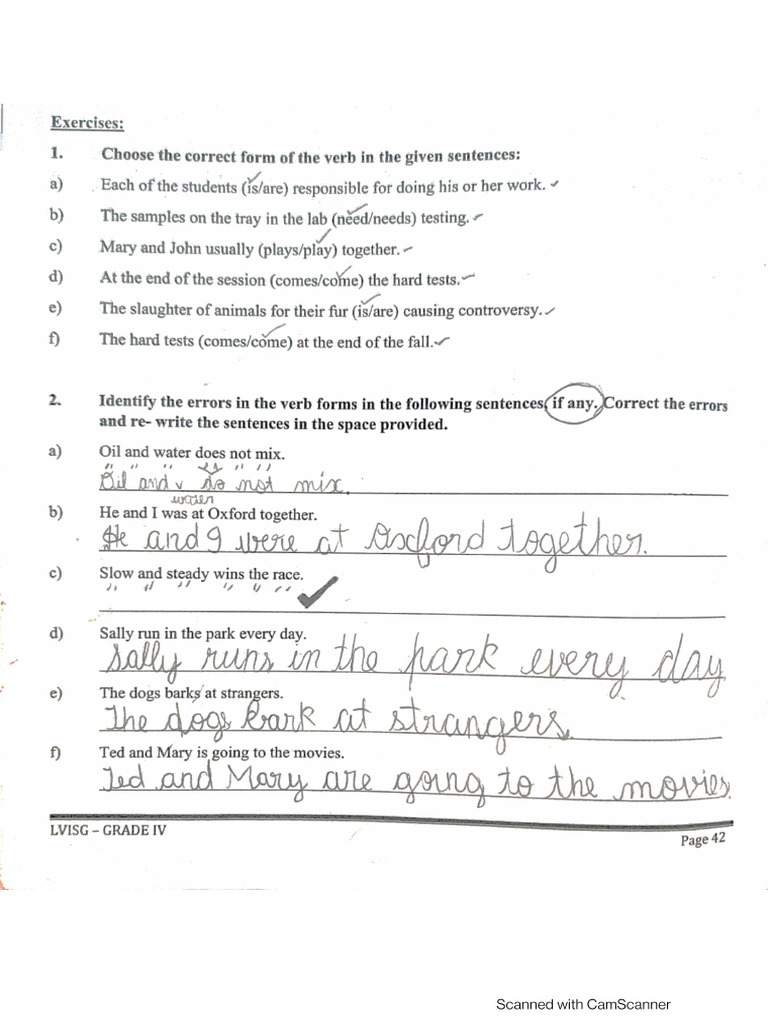 Exercises:
1. Choose the correct form of the verb in the given sentences:
a) Each of the students (is/are) responsible for doing his or her work.
b) The samples on the tray in the lab (need/needs) testing.
c) Mary and John usually (plays/play) together.
d) At the end of the session (comes/come) the hard tests.
e) The slaughter of animals for their fur (is/are) causing controversy.
f) The hard tests (comes/come) at the end of the fall.
2. Identify the errors in the verb forms in the following sentences, if any. Correct the errors
and re- write the sentences in the space provided.
a) Oil and water does not mix.
Oil and water do not mix.
b) He and I was at Oxford together.
He and I were at Oxford together.
c) Slow and steady wins the race.
d) Sally run in the park every day.
Sally runs in the park every day
e) The dogs barks at strangers.
The dogs bark at strangers.
f) Ted and Mary is going to the movies.
Ted and Mary are going to the movies.
LVISG – GRADE IV
Page 42
Scanned with CamScanner